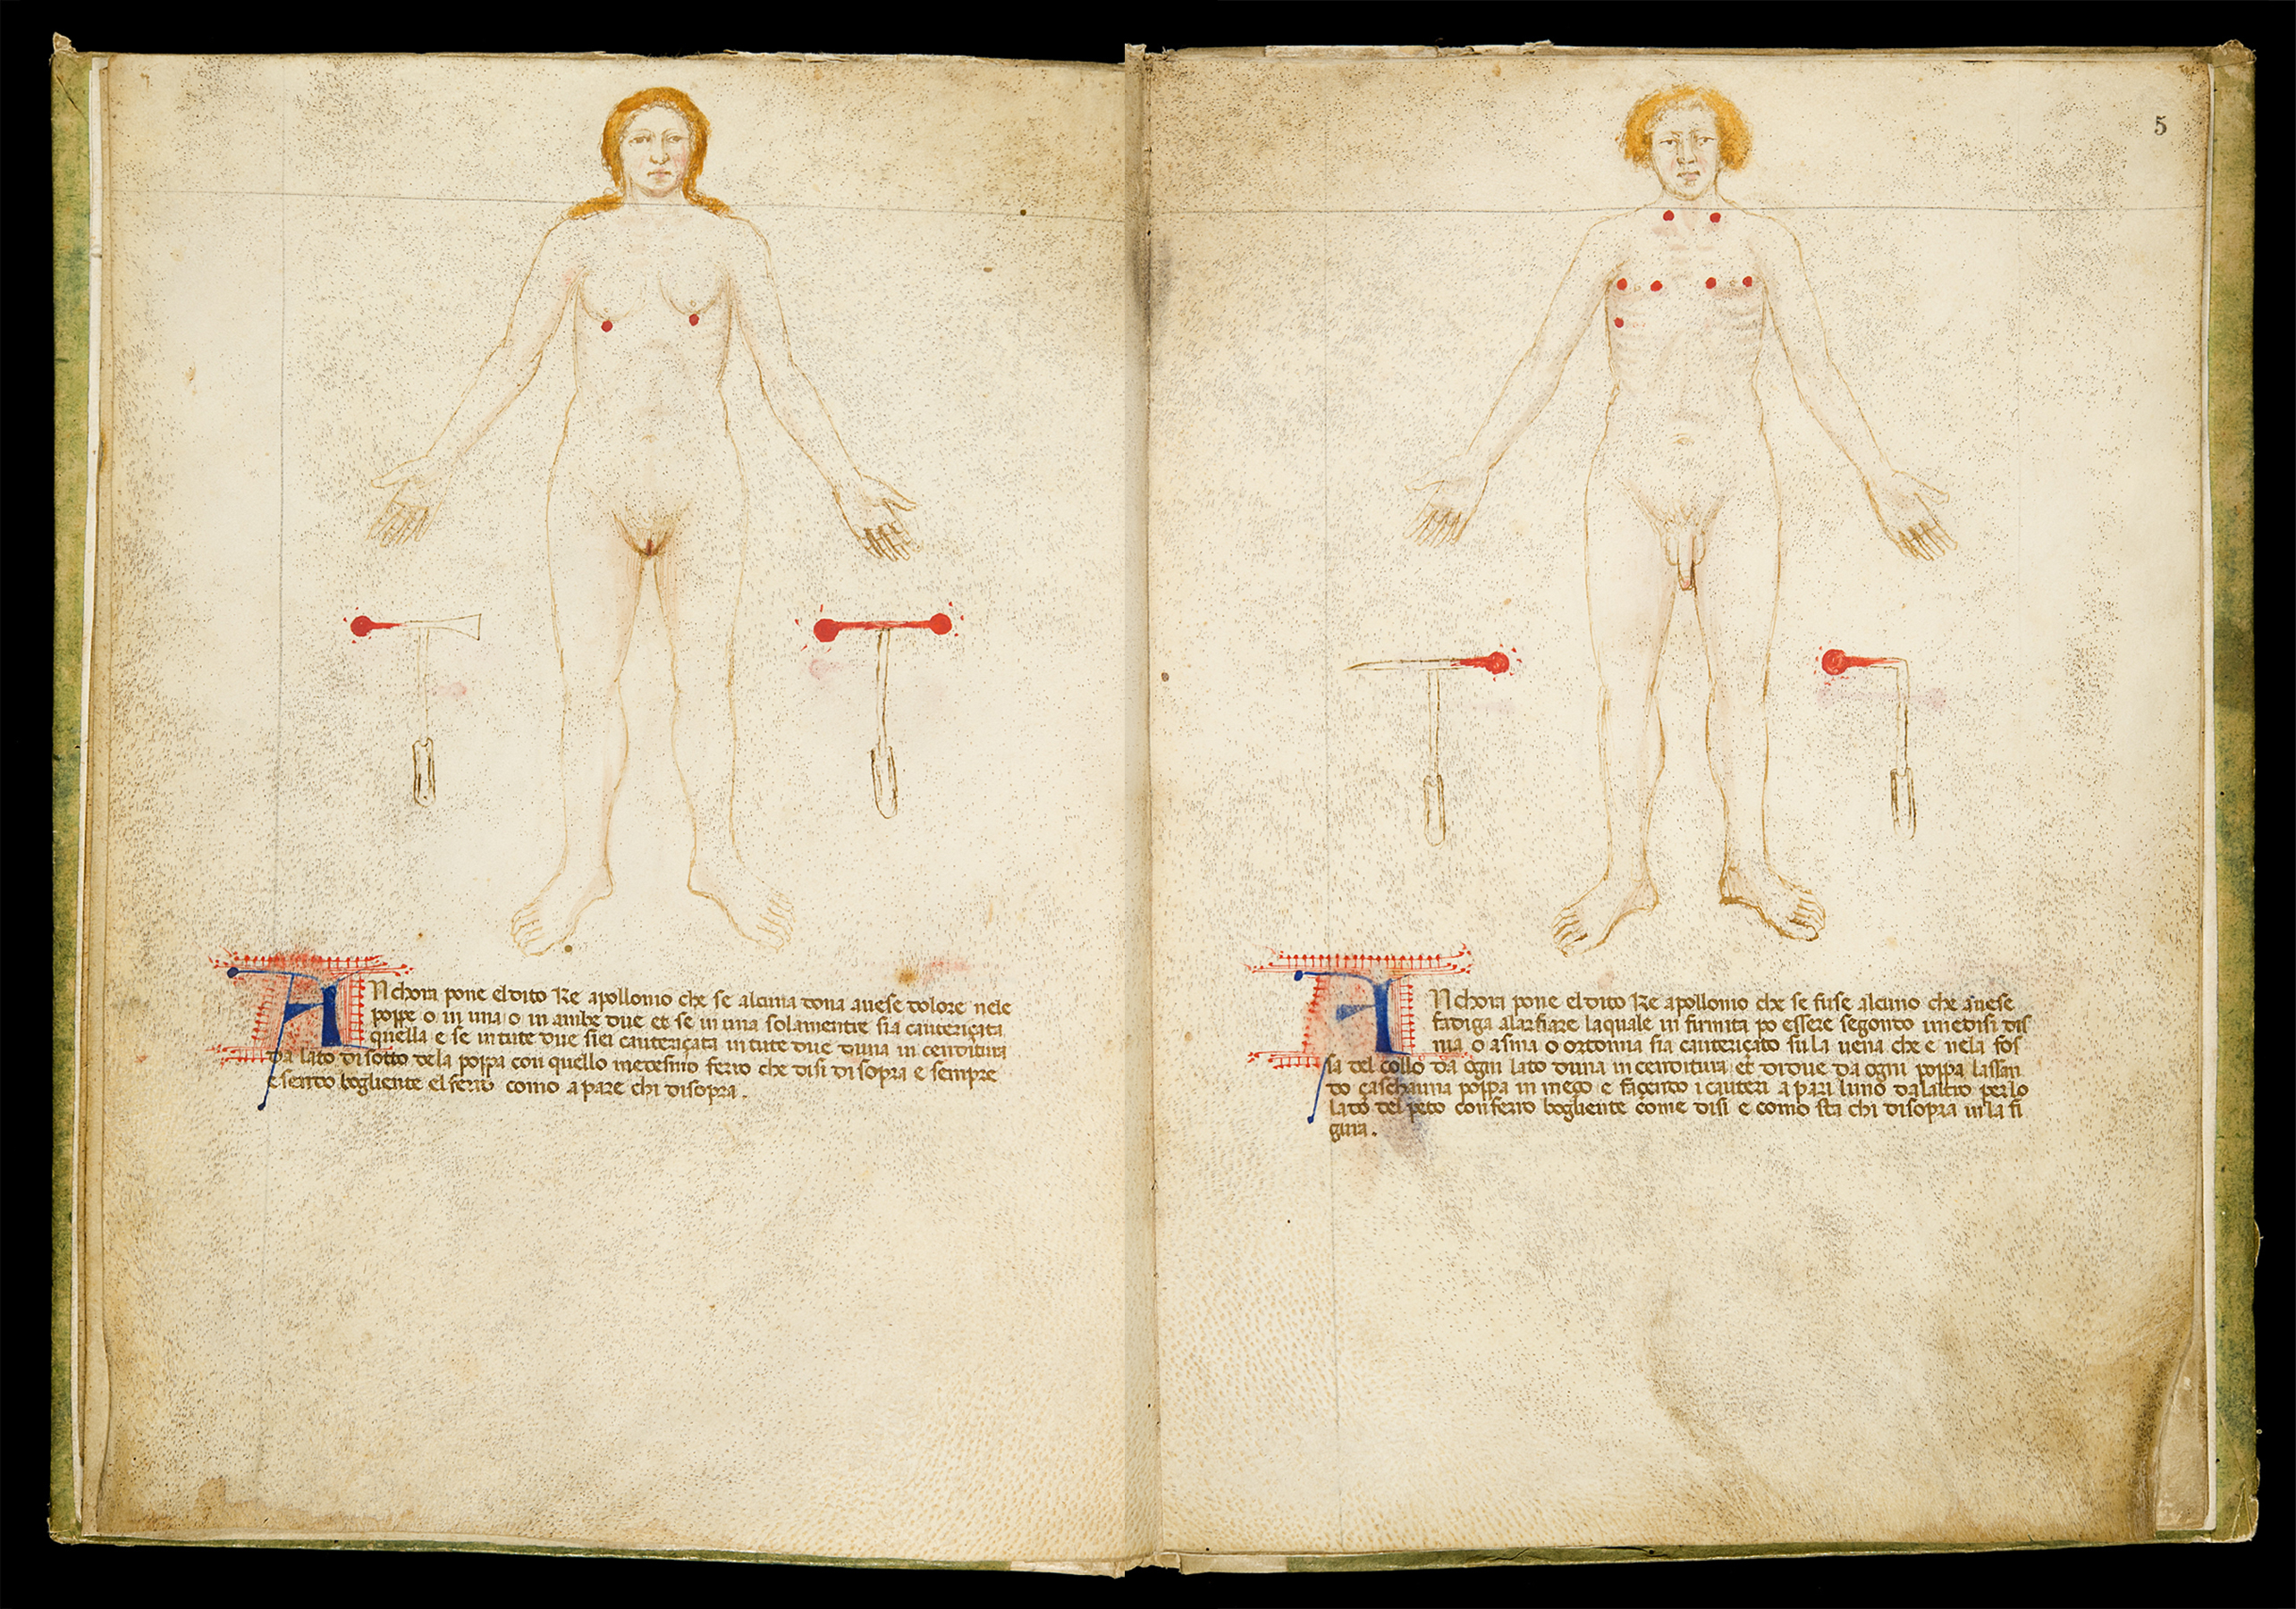 Anchora pone el dito Re apollonio che se alcuna dona avese dolore nele
poppe o in una o in ambe due et se in una solamentre sia cauteriçata
quella e se in tute due siei cauteriçata in tute due duna in cenditura
da lato di sotto dela poppa con quello medesmo ferro che disi di sopra e sempre
esendo bogliente el ferro como apare chi disopra.
5
Anchora pone el dito Re apollonio che se fuse alcuno che avese
fadiga alarfiare laquale in firmita po essere segondo
o asma o ortonna sia cauteriçato su la uena che e nela fos
sa del collo da ogni lato duna in cenditura et didue da ogni poppa lassan
do çaschauna poppa in meço e façendo i cauteri a pari luno dalaltro per lo
lato del peto con ferro bogliente come disi e como sta chi disopra in la fi
gura.